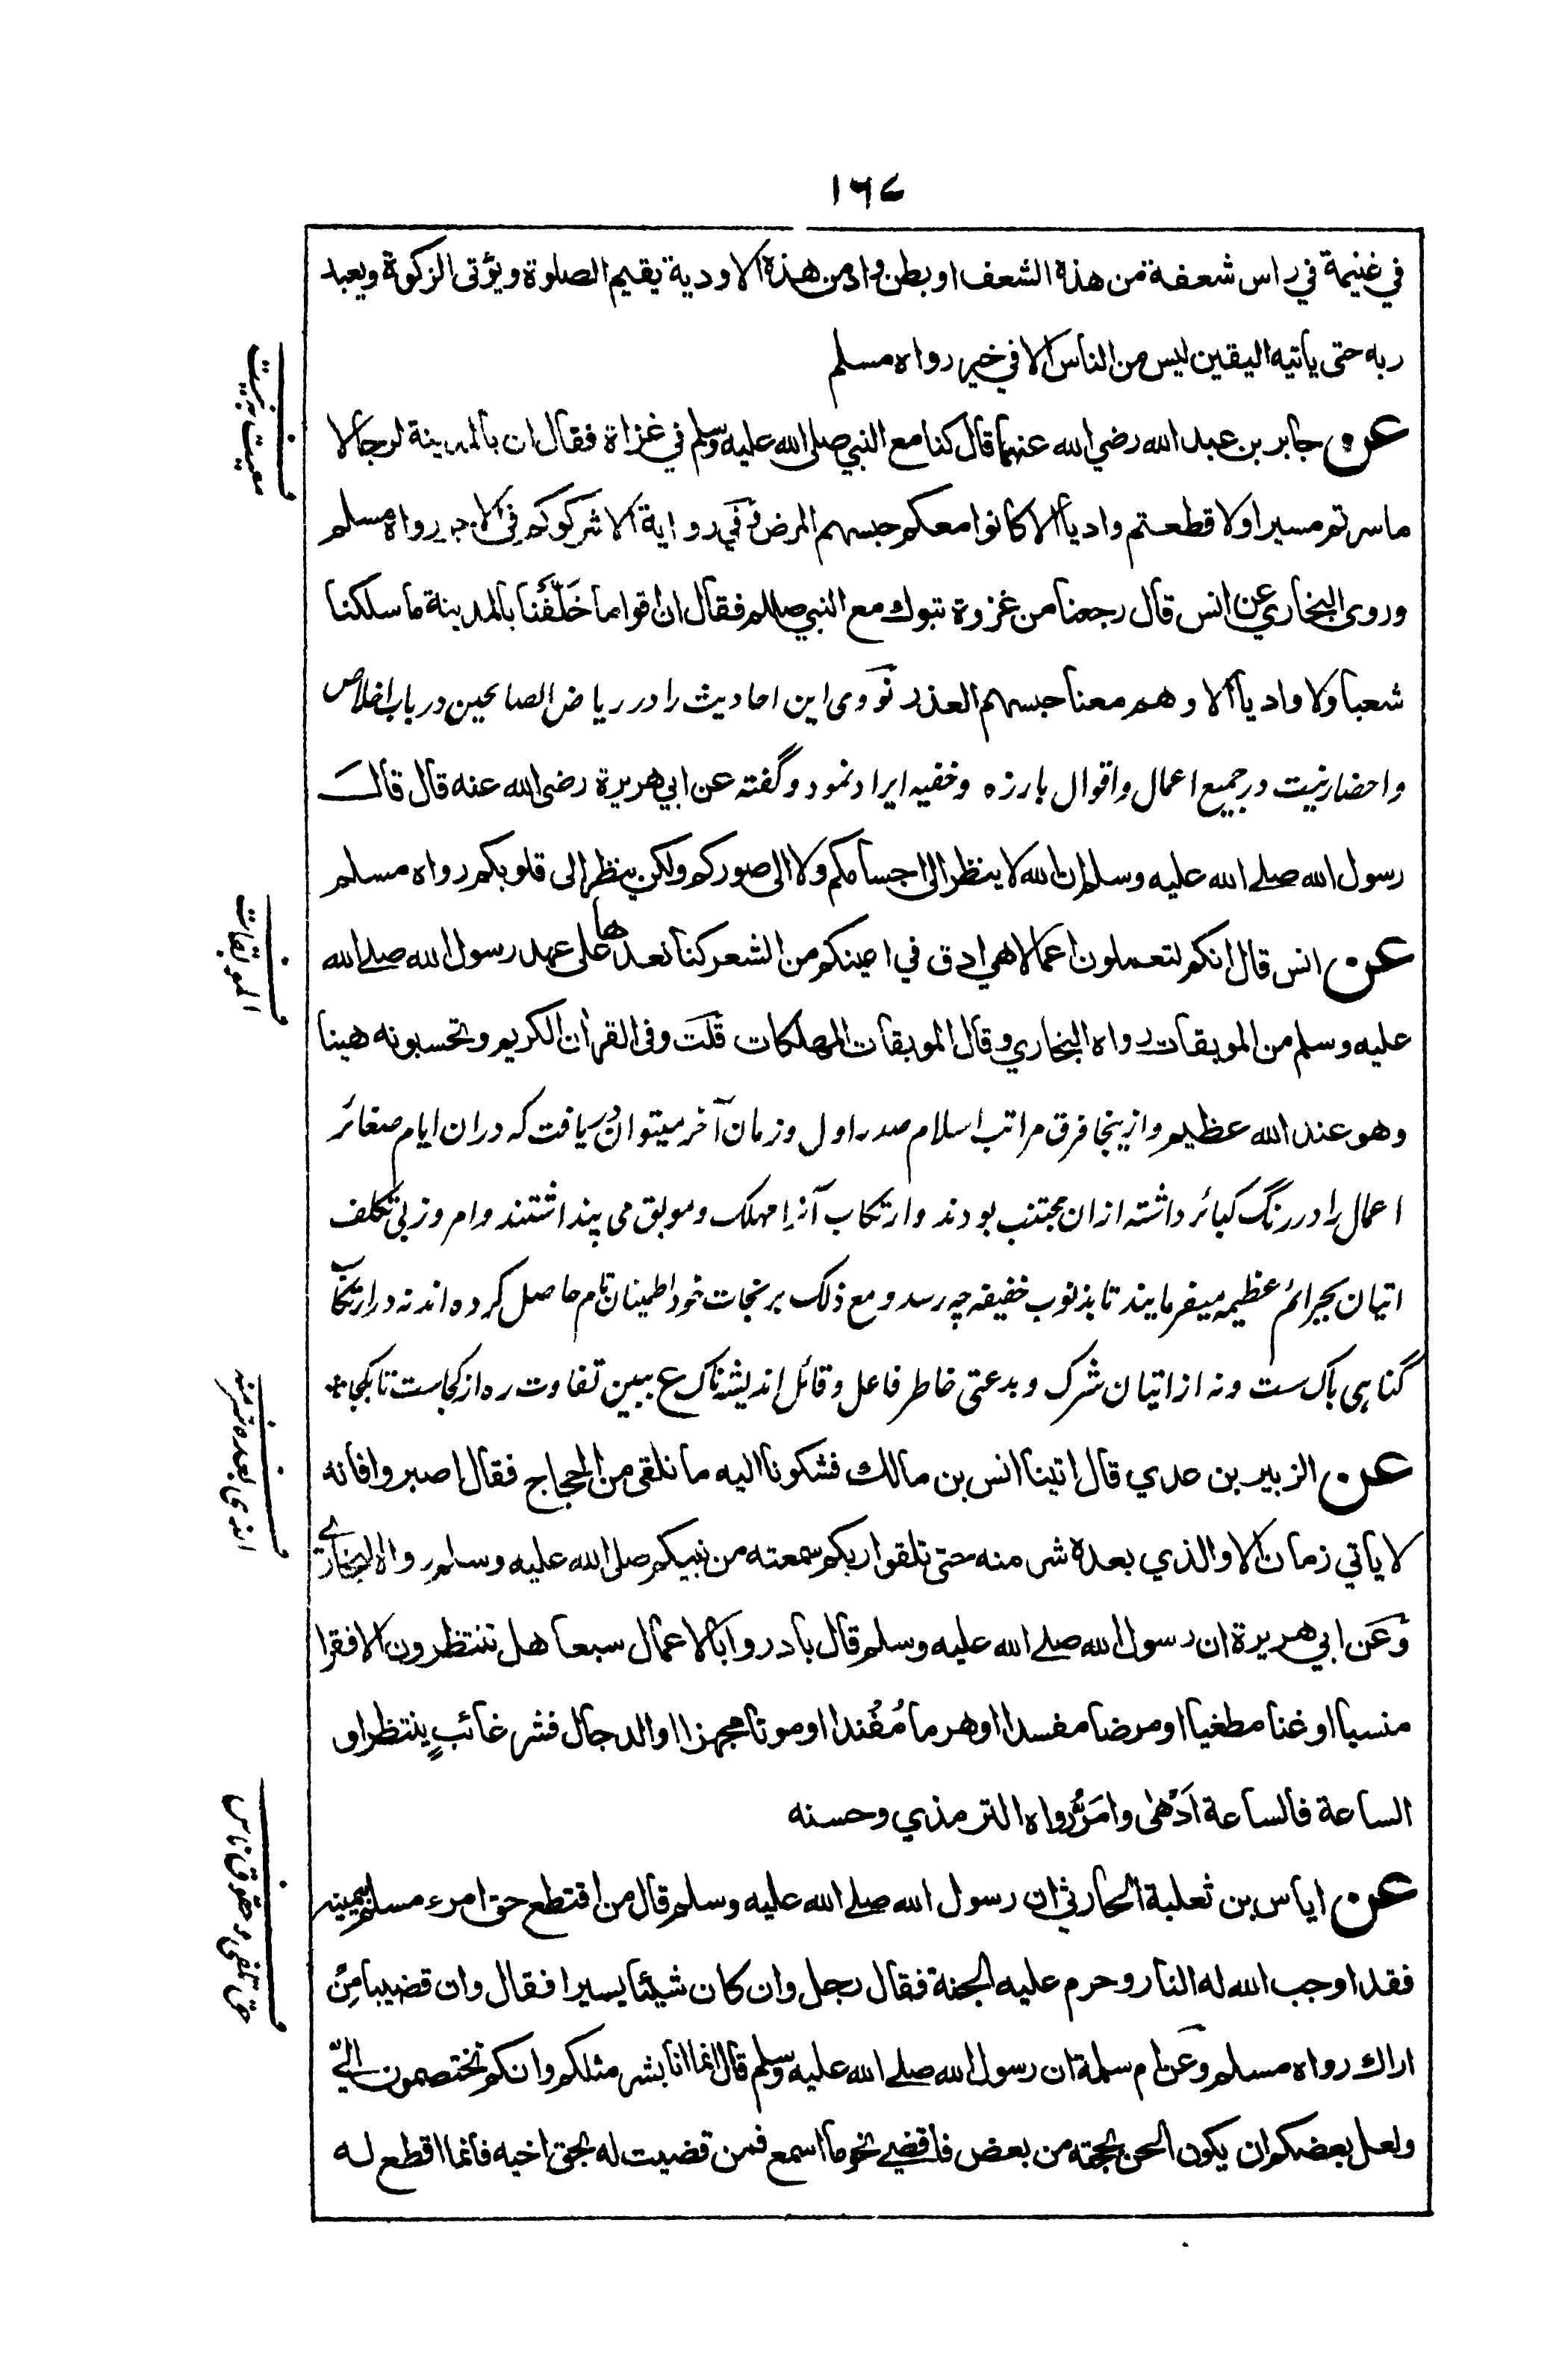 ١٦٧
في غنيمة في راس شعفة من هذه الشعف او بطن واد من هذه الاودية يقيم الصلوة ويؤتى الزكوة ويعبد
ربه حتى ياتيه اليقين ليس من الناس الا في خير رواه مسلم
عن جابر بن عبد الله رضي الله عنهما قال كنا مع النبي صلى الله عليه وسلم في غزاة فقال ان بالمدينة لرجالا
ما سرتم مسيرا ولا قطعتم واديا الا كانوا معكم حبسهم المرض وفي رواية الا شركوكم في الاجر رواه مسلم
وروى البخاري عن انس قال رجعنا من غزوة تبوك مع النبي صللم فقال ان اقواما خَلْفَنا بالمدينة ما سلكنا
شعبا ولا واديا الا وهم معنا حبسهم العذر نووى اين احاديث را در رياض الصالحين در باب اخلاص
واحضار نيت در جميع اعمال واقوال بارزه وخفيه ايراد نمود وگفته عن ابي هريرة رضى الله عنه قال قال
رسول الله صلے الله عليه وسلم ان الله لا ينظر الى اجسامكم ولا الى صوركم ولكن ينظر الى قلوبكم رواه مسلم
عن انس قال انكم لتعملون اعمالا هي ادق في اعينكم من الشعر كنا نعدها على عهد رسول الله صلے الله
عليه وسلم من الموبقات رواه البخاري وقال الموبقات المهلكات قلت وفى القرأن الكريم وتحسبونه هينا
وهو عند الله عظيم وازينجا فرق مراتب اسلام صدر اول وزمان آخر ميتوان دريافت كه دران ايام صغائر
اعمال را در رنگ كبائر داشته ازان مجتنب بودند وارتكاب آنرا مهلك وموبق مى پنداشتند وامروز بى تكلف
اتيان بجرائم عظيمه ميفرمايند تا بذنوب خفيفه چه رسد ومع ذلك بر نجات خود اطمينان تام حاصل كرده اند نه در ارتكاب
گناهى باك ست ونه از اتيان شرك وبدعتى خاطر فاعل وقائل انديشه ناك ع ببين تفاوت ره از كجاست تا بكجا
عن الزبير بن عدي قال اتينا انس بن مالك فشكونا اليه ما نلقى من الحجاج فقال اصبروا فانه
لا ياتي زمان الا والذي بعده شر منه حتى تلقوا ربكم سمعته من نبيكم صلى الله عليه وسلم رواه البخاري
وعن ابي هريرة ان رسول الله صلے الله عليه وسلم قال بادروا بالاعمال سبعا هل تنتظرون الا فقرا
منسيا او غنا مطغيا او مرضا مفسدا او هرما مُفْنِدا او موتا مجهزا او الدجال فشر غائبٍ ينتظر او
الساعة فالساعة اَدْهٰى وامَرُّ رواه الترمذي وحسنه
عن اياس بن ثعلبة الحارثي ان رسول الله صلے الله عليه وسلم قال من اقتطع حق امرء مسلم بيمينه
فقد اوجب الله له النار وحرم عليه الجنة فقال رجل وان كان شيئا يسيرا فقال وان قضيبا مِنْ
اراك رواه مسلم وعن ام سلمة ان رسول الله صلے الله عليه وسلم قال انما انا بشر مثلكم وانكم تختصمون اليّ
ولعل بعضكم ان يكون الحن بحجته من بعض فاقضي نحو ما اسمع فمن قضيت له بحق اخيه فانما اقطع له
معيت به نيت
الموبقات
الذى بعده شر منه